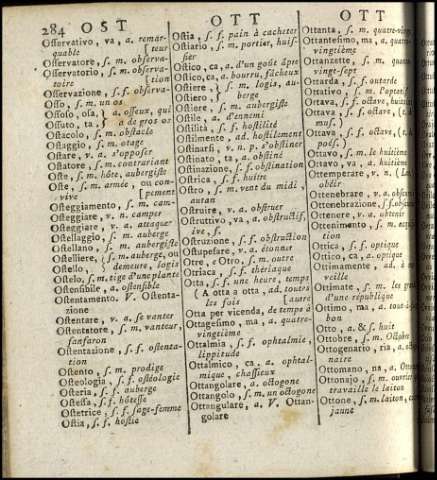 284 OST OTT OTT
Osservativo, va, a. remar-
[teur
quable
Osservatore, s. m. observa-
Osservatorio, s. m. observa-
toire [tion
Osservazione, s. f. observa-
Osso, s. m. un os
Ossoso, osa, } a. osseux, qui
Ossuto, ta, } a de gros os
Ostacolo, s. m. obstacle
Ostaggio, s. m. otage
Ostare, v. n. s'opposer
Ostatore, s. m. contrariant
Oste, s. m. hôte, aubergiste
Oste, s. m. armée, ou con-
vive [pement
Osteggiamento, s. m. cam-
Osteggiare, v. n. camper
Osteggiare, v. a. attaquer
Ostellaggio, s. m. auberge
Ostellano, s. m. aubergiste
Ostelliere, } s. m. auberge, ou
Ostello, } demeure, logis
Ostelo, s. m. tige d'une plante
Ostensibile, a. ostensible
Ostentamento. V. Ostenta-
zione
Ostentare, v. a. se vanter
Ostentatore, s. m. vanteur,
fanfaron
Ostentazione, s. f. ostenta-
tion
Ostento, s. m. prodige
Osteologia, s. f. ostéologie
Osteria, s. f. auberge
Ostessa, s. f. hôtesse
Ostetrice, s. f. sage-femme
Ostia, s. f. hostie
Ostia, s. f. pain à cacheter
Ostiario, s. m. portier, huis-
sier
Ostico, ca, a. d'un goût âpre
Ostico, ca, a. bourru, fâcheux
Ostiere, } s. m. logis, au-
Ostiero, } berge
Ostiere, s. m. aubergiste
Ostile, a. d'ennemi
Ostilità, s. f. hostilité
Ostilmente, ad. hostilement
Ostinarsi, v. n. p. s'obstiner
Ostinato, ta, a. obstiné
Ostinazione, s. f. obstination
Ostrica, s. f. huître
Ostro, s. m. vent du midi,
autan
Ostruire, v. a. obstruer
Ostruttivo, va, a. obstructif,
ive, f.
Ostruzione, s. f. obstruction
Ostupefare, v. a. étonner
Otre, e Otro, s. m. outre
Otriaca, s. f. thériaque
Otta, s. f. une heure, temps
(A otta a otta, ad. toutes
les fois [aure
Otta per vicenda, de temps à
Ottagesimo, ma, a. quatre-
vingtième
Ottalmia, s. f. ophtalmie,
lippitude
Ottalmico, ca, a. ophtal-
mique, chassieux
Ottangolare, a. octogone
Ottangolo, s. m. un octogone
Ottangulare, a. V. Ottan-
golare
Ottanta, s. m. quatre-vingt
Ottantesimo, ma, a. quatre-
vingtième
Ottanzette, s. m. quatre-
vingt-sept
Ottarda, s. f. outarde
Ottativo, s. m. l'optat
Ottava, s. f. octave, huit
Ottava, s. f. octave, (t. de
Ottava, s. f. octave, (t. de
poés.)
Ottavo, s. m. le huitième
Ottavo, va, a. huitième
Ottemperare, v. n. (Lat.)
obéir
Ottenebrare, v. a. obscur
Ottenebrazione, s. f. obscur
Ottenere, v. a. obtenir
Ottenimento, s. m.
Ottica, s. f. optique
Ottico, ca, a. optique
Ottimamente, ad. à mer-
veille
Ottimate, s. m. les grands
d'une république
Ottimo, ma, a.
fait bon
Otto, a. & s. huit
Ottobre, s. m. Octobre
Ottogenario, ria, a.
naire
Ottomano, na, a. Ottoman
Ottonajo, s. m. ouvrier
travaille le laiton
Ottone, s. m. laiton,
jaune